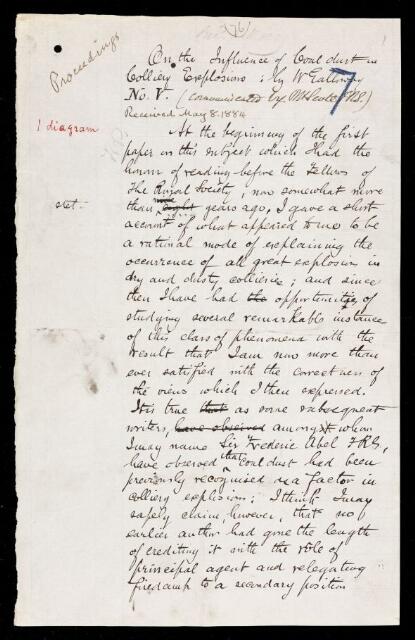 (76)
Proceedings
On the Influence of Coal dust in
Colliery Explosions: by W Galloway
No. V. (Communicated by R H Scott F.R.S.)
7
Received May 8. 1884
1 diagram
At the beginning of the first
paper on this subject which I had the
honour of reading before the Fellows of
stet.
The Royal Society, now somewhat more
than eight years ago, I gave a short
account of what appeared to me to be
a rational mode of explaining the
occurrence of all great explosions in
dry and dusty collieries; and since
then I have had the opportunities of
studying several remarkable instances
of this class of phenomena with the
result that I am now more than
ever satisfied with the correctness of
the views which I then expressed.
It is true that as some subsequent
writers, have observed amongst whom
I may name Sir Frederic Abel F.R.S,
have observed that coal dust had been
previously recognised as a factor in
colliery explosions; I think I may
safely claim, however, that no
earlier author had gone the length
of crediting it with the rôle of
principal agent and relegating
firedamp to a secondary position